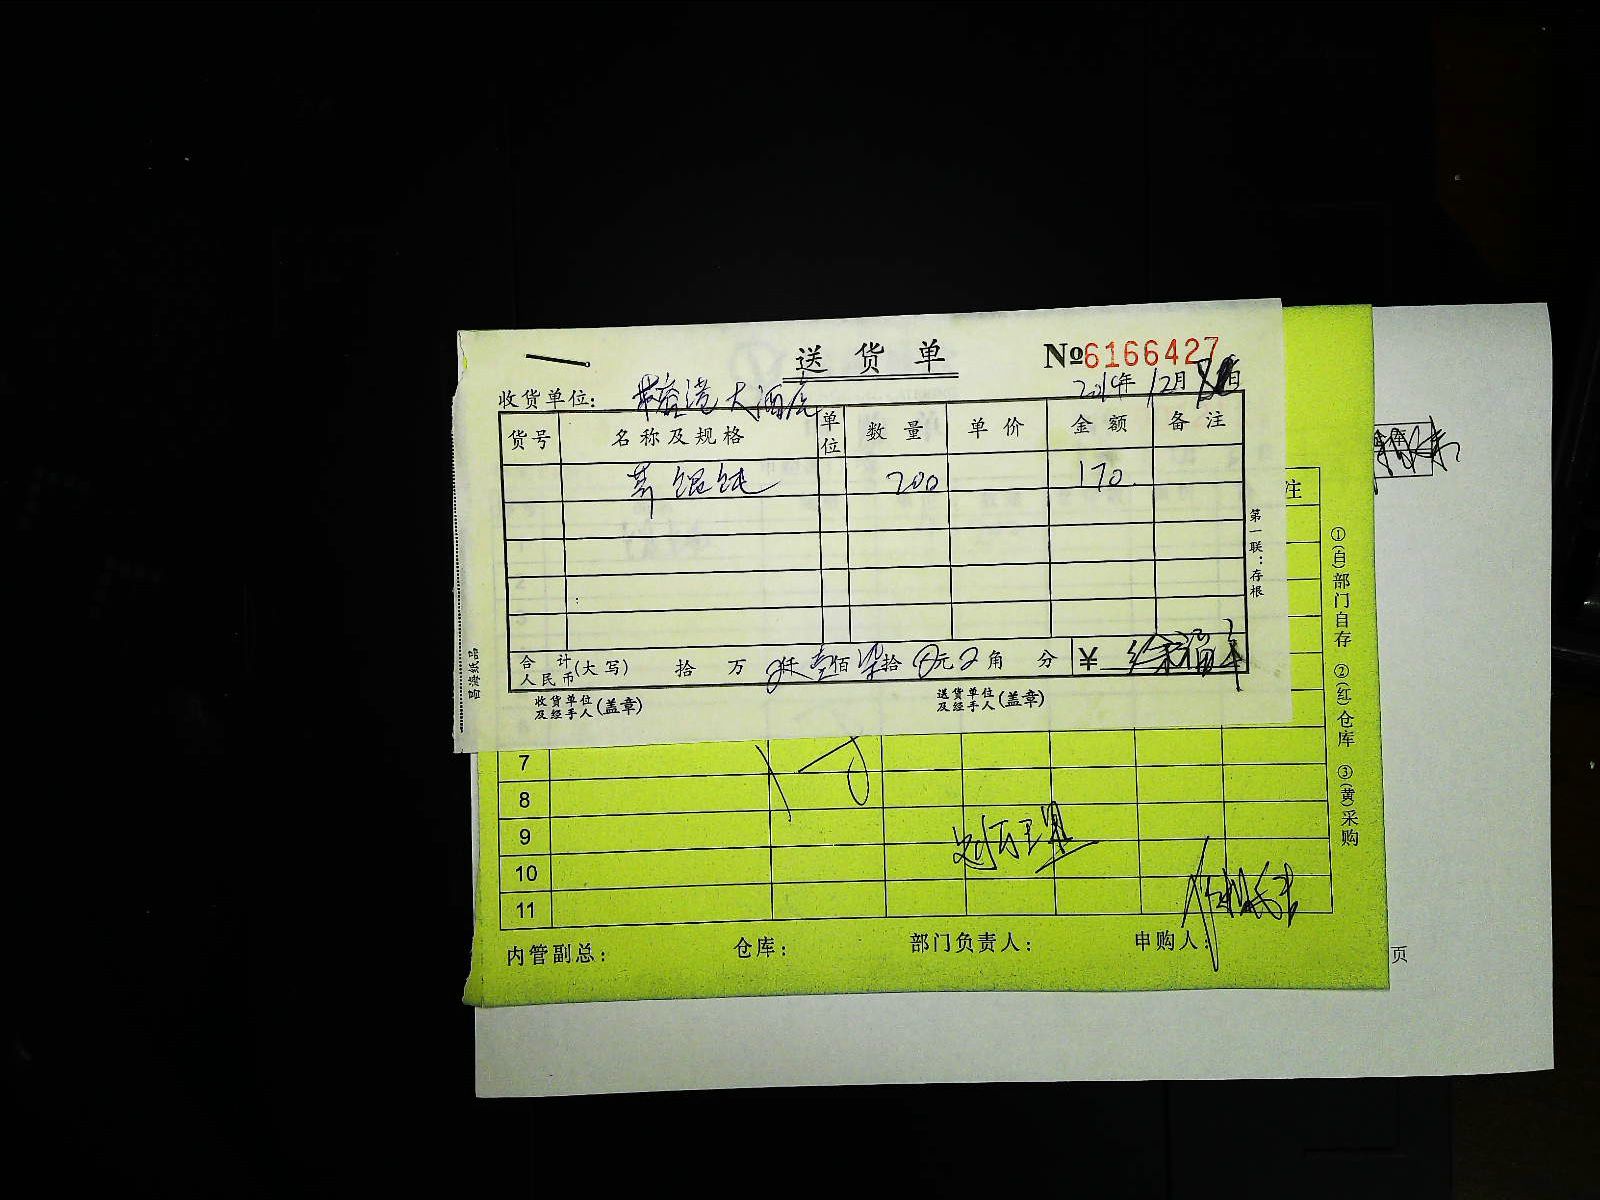 送货单 №6166427
收货单位: 大酒店 年12月 日
货号 名称及规格 单位 数量 单价 金额 备注
200 170
合计人民币(大写) 拾 万 仟壹佰柒拾 元 角 分 ¥
收货单位及经手人(盖章) 送货单位及经手人(盖章)
第一联:存根
昌海纸品
注
7
8
9
10
11
内管副总: 仓库: 部门负责人: 申购人:
①(白)部门自存 ②(红)仓库 ③(黄)采购
页